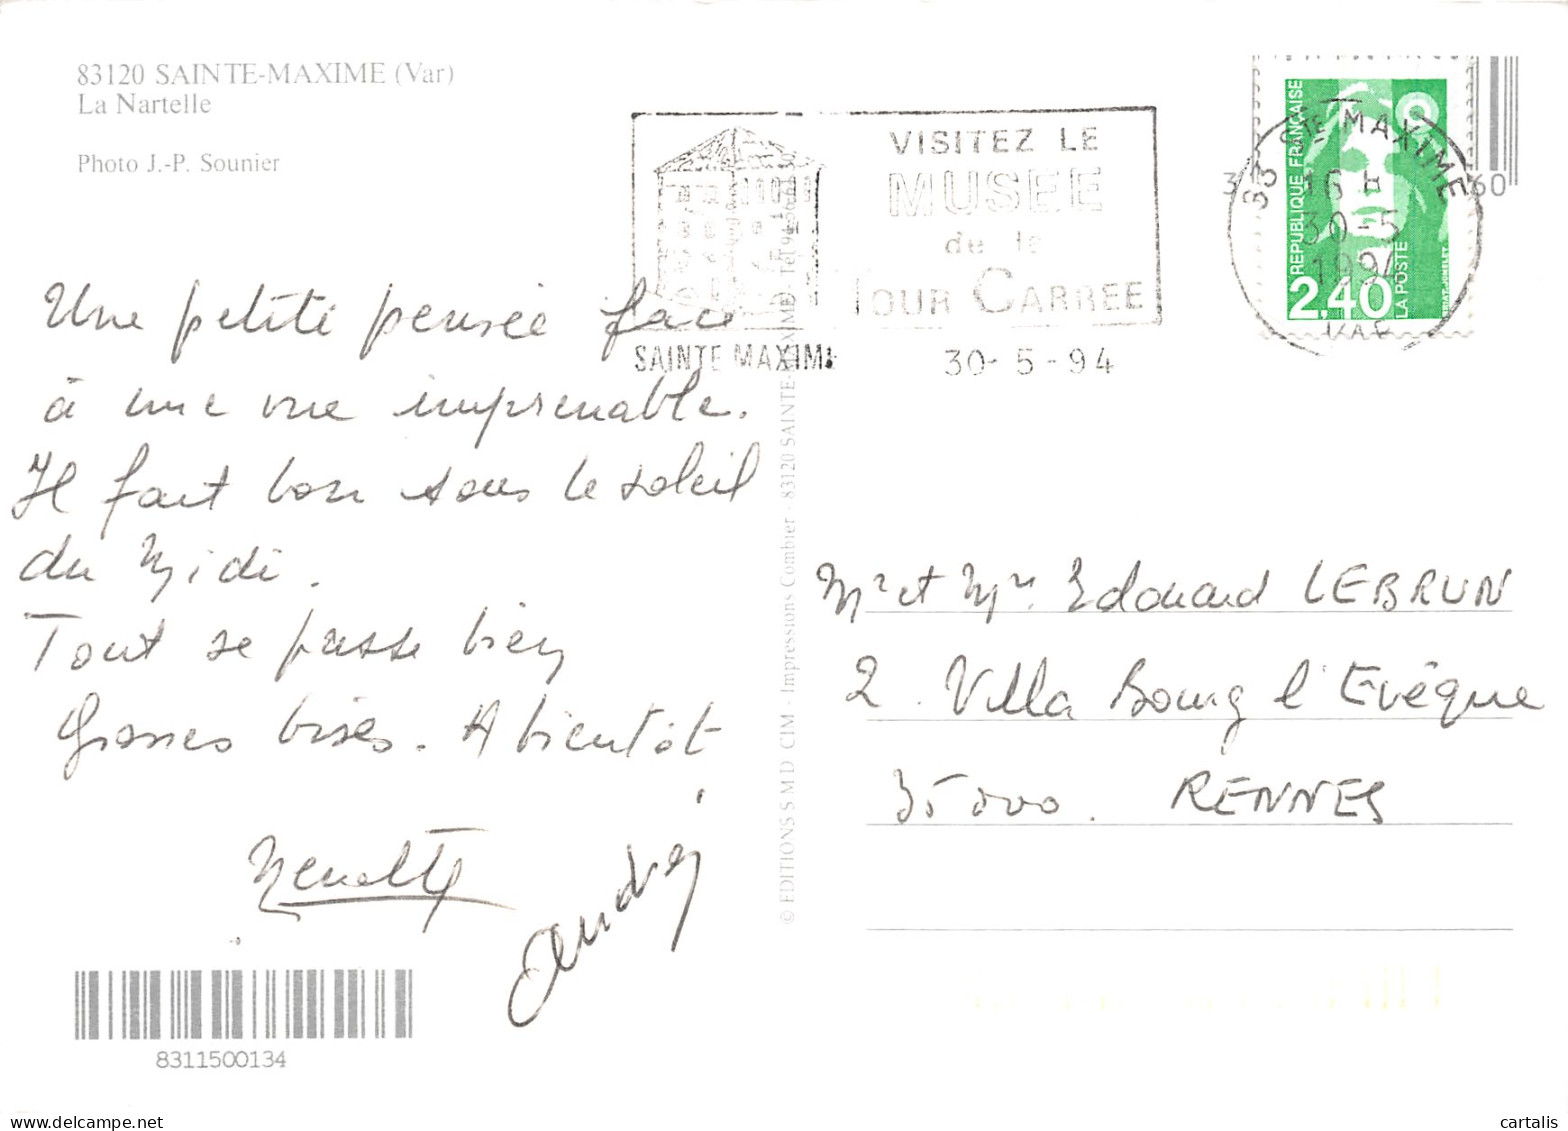 83120 SAINTE-MAXIME (Var)
La Nartelle
Photo J.-P. Sounier
VISITEZ LE
MUSEE
de la
TOUR CARREE
SAINTE MAXIME
30-5-94
83 STE-MAXIME
16 H
30-5
1994
VAR
REPUBLIQUE FRANÇAISE
2,40
LA POSTE
Une petite pensée face
à une vue imprenable.
Il fait bon sous le soleil
du Midi.
Tout se passe bien
Grosses bises. A bientôt
André
© EDITIONS S M D CIM - Impressions Combier - 83120 SAINTE-MAXIME
Mr et Mme Edouard LEBRUN
2 Villa Bourg l'Evêque
35000. RENNES
8311500134
cartalis